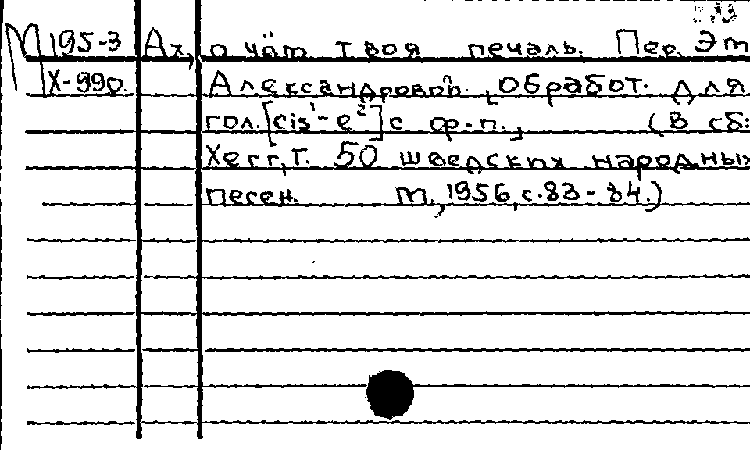 М 195-3 Ах, о чём твоя печаль. Пер. Эт
Х-990 Александровой. [Обработ. для
гол. [cis¹-e²] с ф-п.] (В сб:
Хегг, Г. 50 шведских народных
песен. М., 1956, с. 83-84.)